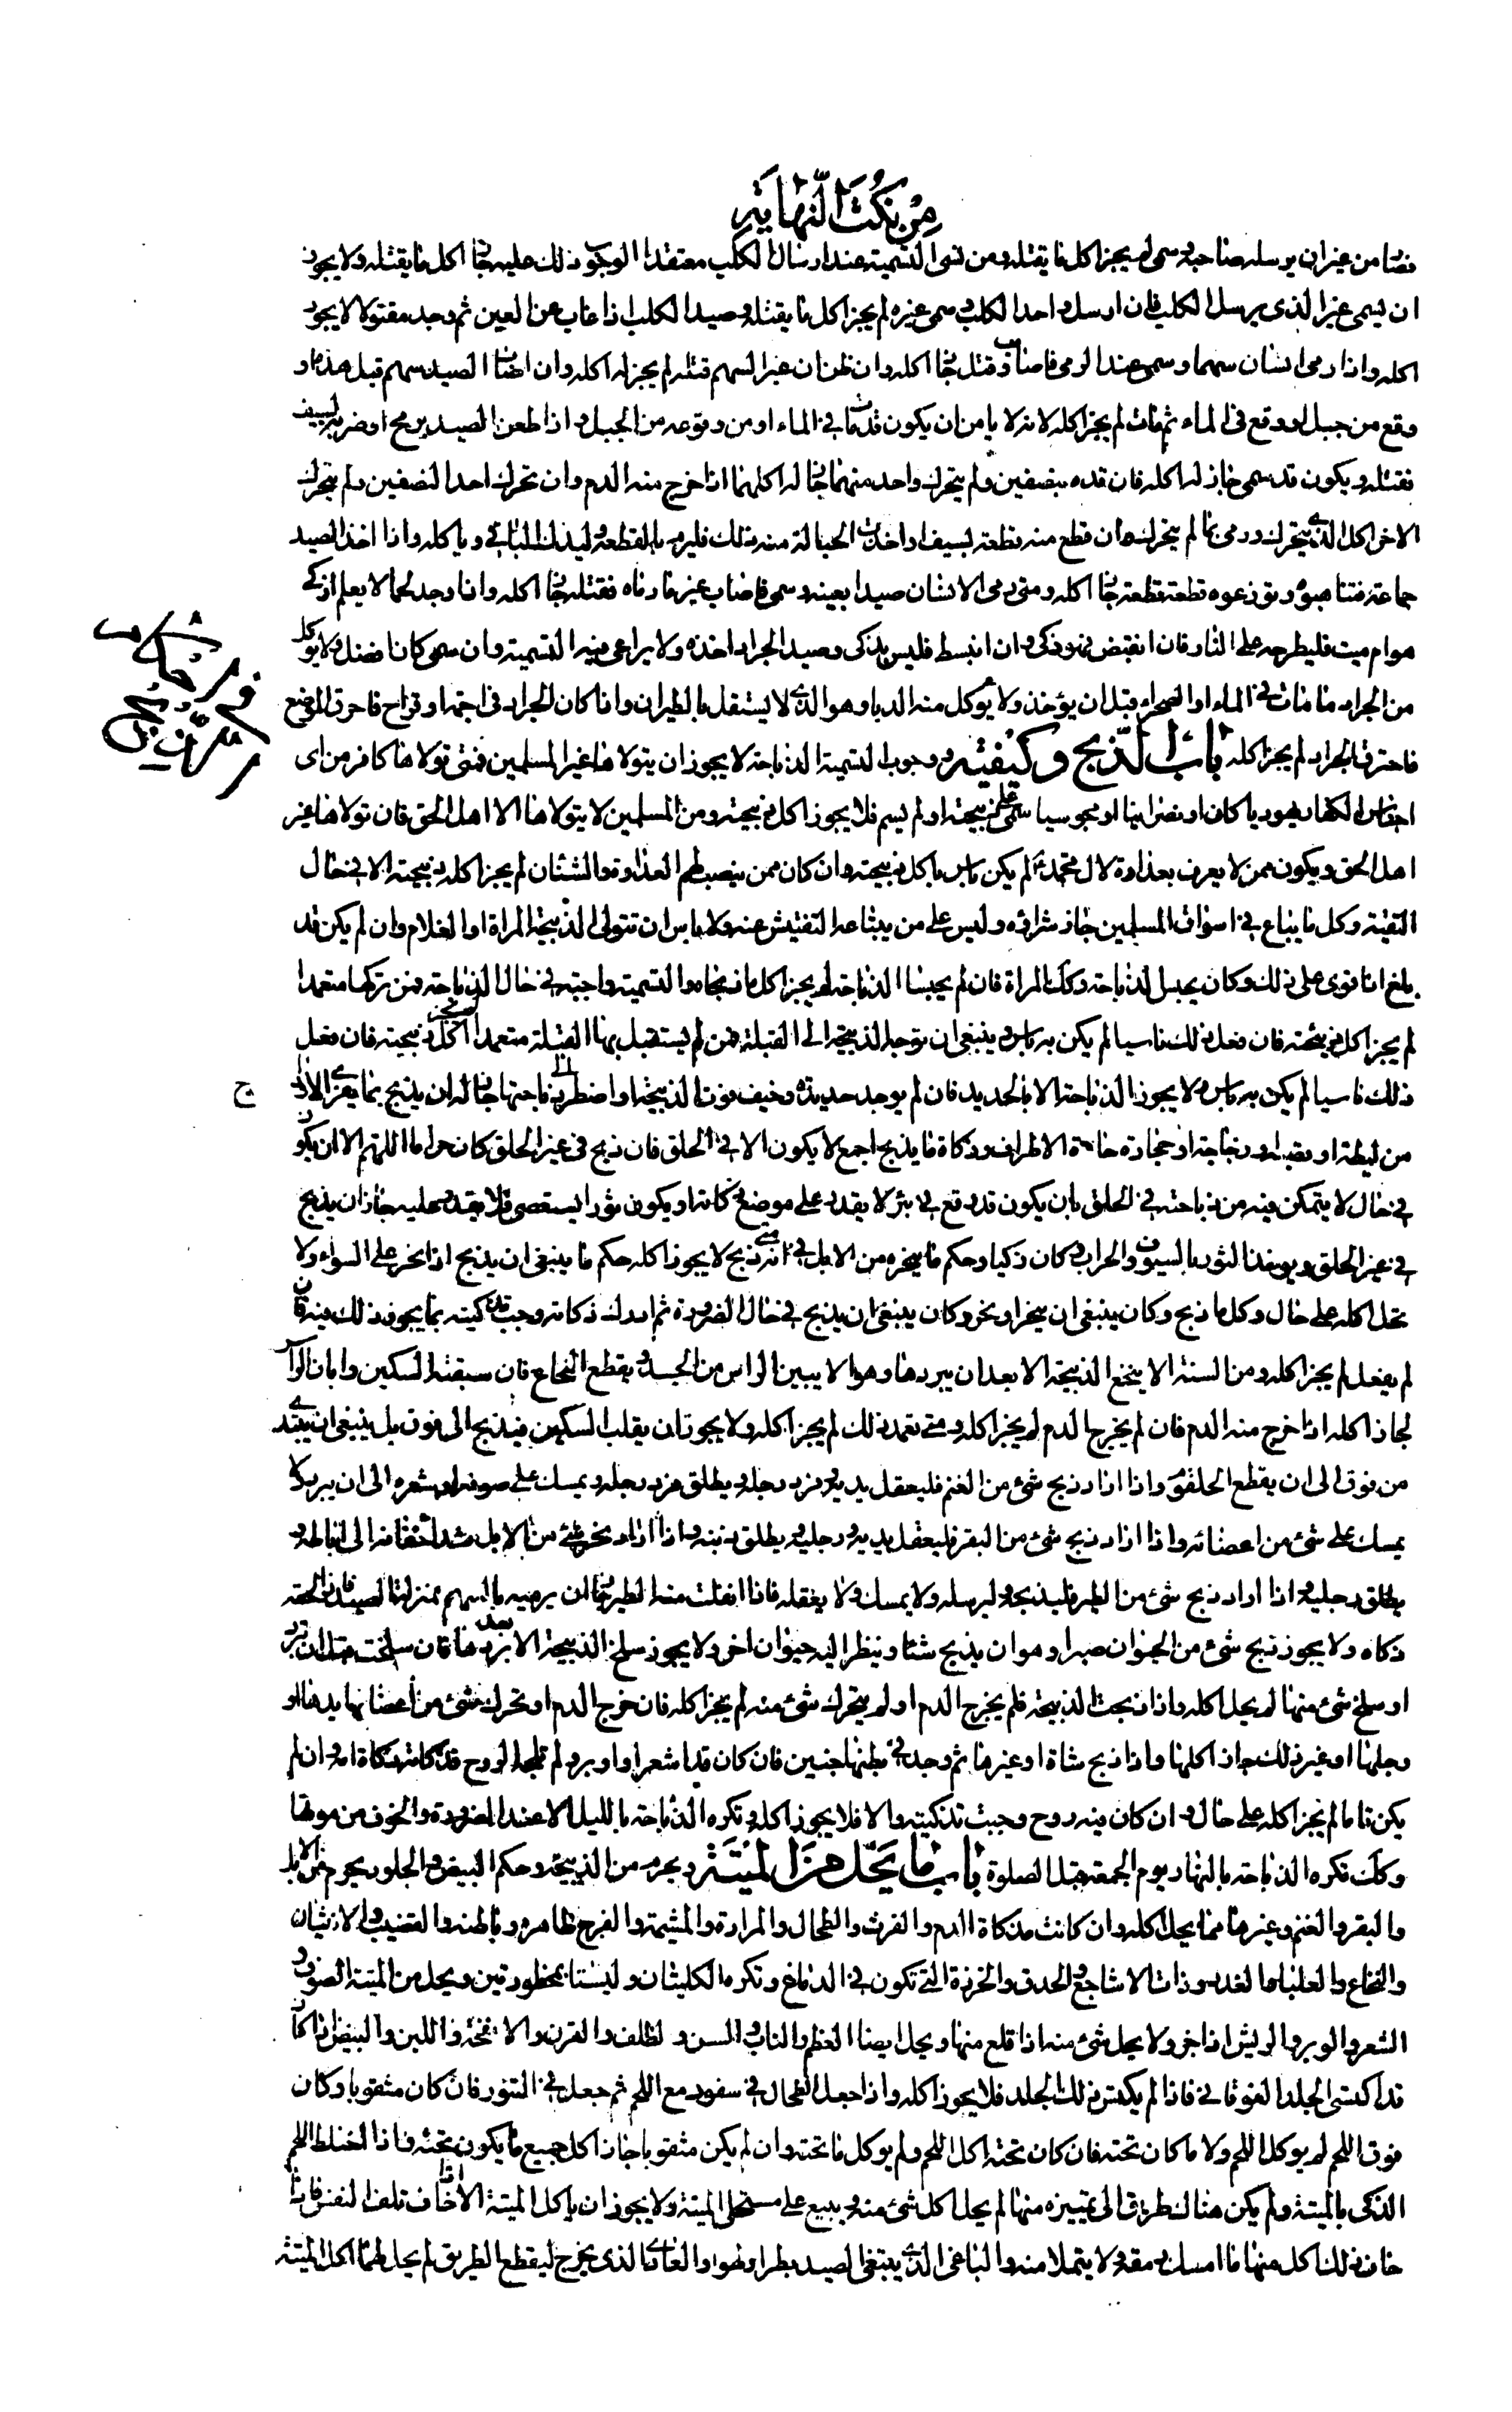 من نكت النهاية
فصاد من غير ان يرسله صاحبه وسمى لم يجز اكل ما يقتله ومن نسى التسمية عند ارسال الكلب معتقدا لوجوب ذلك عليه جاز اكل ما يقتله ولا يجوز
ان يسمى غير الذى يرسل الكلب فان ارسل واحد الكلب وسمى غيره لم يجز اكل ما يقتله وصيد الكلب اذا غاب عن العين ثم وجد مقتولا لا يجوز
اكله واذا رمى انسان سهما وسمى عند الرمى فاصاب وقتل جاز اكله وان ظن ان غير السهم قتله لم يجز له اكله وان اصاب الصيد سهم قبل هذه او
وقع من جبل او وقع فى الماء ثم مات لم يجز اكله لانه لا يامن ان يكون قد مات فى الماء او من وقوعه من الجبل واذا طعن الصيد برمح او ضربه بسيف
فقتله ويكون قد سمى جاز له اكله فان قده بنصفين ولم يتحرك واحد منهما جاز له اكلهما اذا خرج منه الدم وان تحرك احد النصفين ولم يتحرك
الاخر اكل الذى يتحرك ورمى بما لم يتحرك وان قطع منه قطعة بسيف او اخذت الحبالة منه ذلك فليرم بالقطعة وليذك الباقى وياكله واذا اخذ الصيد
جماعة فتناهبوه وتوزعوه قطعة قطعة جاز اكله ومتى رمى الانسان صيدا بعينه وسمى فاصاب غير ما رماه فقتله جاز اكله واذا وجد لحما لا يعلم اذكى
هو ام ميت فليطرحه على النار فان انقبض فهو ذكى وان انبسط فليس بذكى وصيد الجراد اخذه ولا يراعى فيه التسمية وان سمى كان افضل ولا يوكل
من الجراد ما مات فى الماء او الصحراء قبل ان يؤخذ ولا يوكل منه الدبا وهو الذى لا يستقل بالطيران واذا كان الجراد فى اجمة او قراح فاحرق الموضع
فاحترق الجراد لم يجز اكله باب الذبح وكيفيته ووجوب التسمية الذباحة لا يجوز ان يتولاها غير المسلمين فمتى تولاها كافر من اى
اجناس الكفار يهوديا كان او نصرانيا او مجوسيا سمى على ذبيحته او لم يسم فلا يجوز اكل ذبيحته ومن المسلمين لا يتولاها الا اهل الحق فان تولاها غير
اهل الحق ويكون ممن لا يعرف بعداوة لال محمد لم يكن باس باكل ذبيحته وان كان ممن ينصب لهم العداوة والشنان لم يجز اكل ذبيحته الا فى حال
التقية وكل ما يباع فى اسواق المسلمين جاز شراؤه وليس على من يبتاعه التفتيش عنه ولا باس ان تتولى الذبيحة المراة او الغلام وان لم يكن قد
بلغ اذا قوى على ذلك وكان يحسن الذباحة وكذلك المراة فان لم يحسنا الذباحة لم يجز اكل ما ذبحاه والتسمية واجبة فى حال الذباحة فمن تركها متعمدا
لم يجز اكل ذبيحته فان فعل ذلك ناسيا لم يكن به باس وينبغى ان توجه الذبيحة الى القبلة فمن لم يستقبل بها القبلة متعمدا لم يجز اكل ذبيحته فان فعل
ذلك ناسيا لم يكن به باس ولا يجوز الذباحة الا بالحديد فان لم يوجد حديدة وخيف فوت الذبيحة او اضطر الى ذباحتها جاز له ان يذبح بما يفرى الاوداج
من ليطة او قصبة او زجاجة او حجارة حادة الاطراف وذكاة ما يذبح اجمع لا يكون الا فى الحلق فان ذبح فى غير الحلق كان حراما اللهم الا ان يكون
فى حال لا يتمكن فيه من ذباحته فى الحلق بان يكون قد وقع فى بئر لا يقدر على موضع ذكاته او يكون ثورا يستعصى فلا يقدر عليه جاز ان يذبح
فى غير الحلق ويوخذ الثور بالسيوف والحراب وكان ذكيا وحكم ما ينحره من الابل فى انه متى ذبح لا يجوز اكله حكم ما ينبغى ان يذبح اذا نحر على السواء ولا
يحل اكله على حال وكل ما ذبح وكان ينبغى ان ينحر او نحر وكان ينبغى ان يذبح فى حال الضرورة ثم ادرك ذكاته وجب تذكيته بما يجوز ذلك فيه فان
لم يفعل لم يجز اكله ومن السنة الا ينخع الذبيحة الا بعد ان يبردها وهو الا يبين الراس من الجسد ويقطع النخاع فان سبقته السكين وابان الراس
جاز اكله اذا خرج منه الدم فان لم يخرج الدم لم يجز اكله ومتى تعمد ذلك لم يجز اكله ولا يجوز ان يقلب السكين فيذبح الى فوق بل ينبغى ان يبتدى
من فوق الى ان يقطع الحلقوم واذا اراد ذبح شئ من الغنم فليعقل يديه وفرد رجله ويطلق فرد رجله ويمسك على صوفه او شعره الى ان يبرد ولا
يمسك على شئ من اعضائه واذا اراد ذبح شئ من البقر فليعقل يديه ورجليه ويطلق ذنبه واذا اراد نحر شئ من الابل شد اخفافه الى اباطه و
يطلق رجليه واذا اراد ذبح شئ من الطير فليذبحه وليرسله ولا يمسك ولا يعقله فاذا انفلت منه الطير جاز ان يرميه بالسهم بمنزلة الصيد فاذا لحقه
ذكاه ولا يجوز ذبح شئ من الحيوان صبرا وهو ان يذبح شيئا وينظر اليه حيوان اخر ولا يجوز سلخ الذبيحة الا بعد بردها فان سلخت قبل ان تبرد
او سلخ شئ منها لم يحل اكله واذا ذبحت الذبيحة فلم يخرج الدم او لم يتحرك شئ منه لم يجز اكله فان خرج الدم او تحرك شئ من اعضائها يدها او
رجلها او غير ذلك جاز اكلها واذا ذبح شاة او غيرها ثم وجد فى بطنها جنين فان كان قد اشعر او اوبر ولم تلجه الروح فذكاته ذكاة امه وان لم
يكن تاما لم يجز اكله على حال وان كان فيه روح وجبت تذكيته والا فلا يجوز اكله وتكره الذباحة بالليل الا عند الضرورة والخوف من موتها
وكذلك تكره الذباحة بالنهار يوم الجمعة قبل الصلوة باب ما يحل من الميتة ويحرم من الذبيحة وحكم البيض والجلود يحرم من الابل
والبقر والغنم وغيرها مما يحل اكله وان كانت مذكاة الدم والفرث والطحال والمرارة والمشيمة والفرج ظاهره وباطنه والقضيب والانثيان
والنخاع والعلباء والغدد وذات الاشاجع والحدق والخرزة التى تكون فى الدماغ وتكره الكليتان وليستا بمحظورتين ويحل من الميتة الصوف و
الشعر والوبر والريش اذا جز ولا يحل شئ منه اذا قلع منها ويحل ايضا العظم والناب والسن والظلف والقرن والانفحة واللبن والبيض اذا كان
قد اكتسى الجلد الفوقانى فاذا لم يكتس ذلك الجلد فلا يجوز اكله واذا جعل الطحال فى سفود مع اللحم ثم جعل فى التنور فان كان مثقوبا وكان
فوق اللحم لم يوكل اللحم ولا ما كان تحته فان كان تحته اكل اللحم ولم يوكل ما تحته وان لم يكن مثقوبا جاز اكل جميع ما يكون تحته فاذا اختلط اللحم
الذكى بالميتة ولم يكن هناك طريق الى تمييزه منها لم يحل اكل شئ منه وبيع على مستحلى الميتة ولا يجوز ان ياكل الميتة الا اذا خاف تلف النفس فاذا
خاف ذلك اكل منها ما امسك رمقه ولا يتملا منه والباغى الذى يبتغى الصيد بطرا ولهوا والعادى الذى يخرج ليقطع الطريق لم يحل لهما اكل الميتة